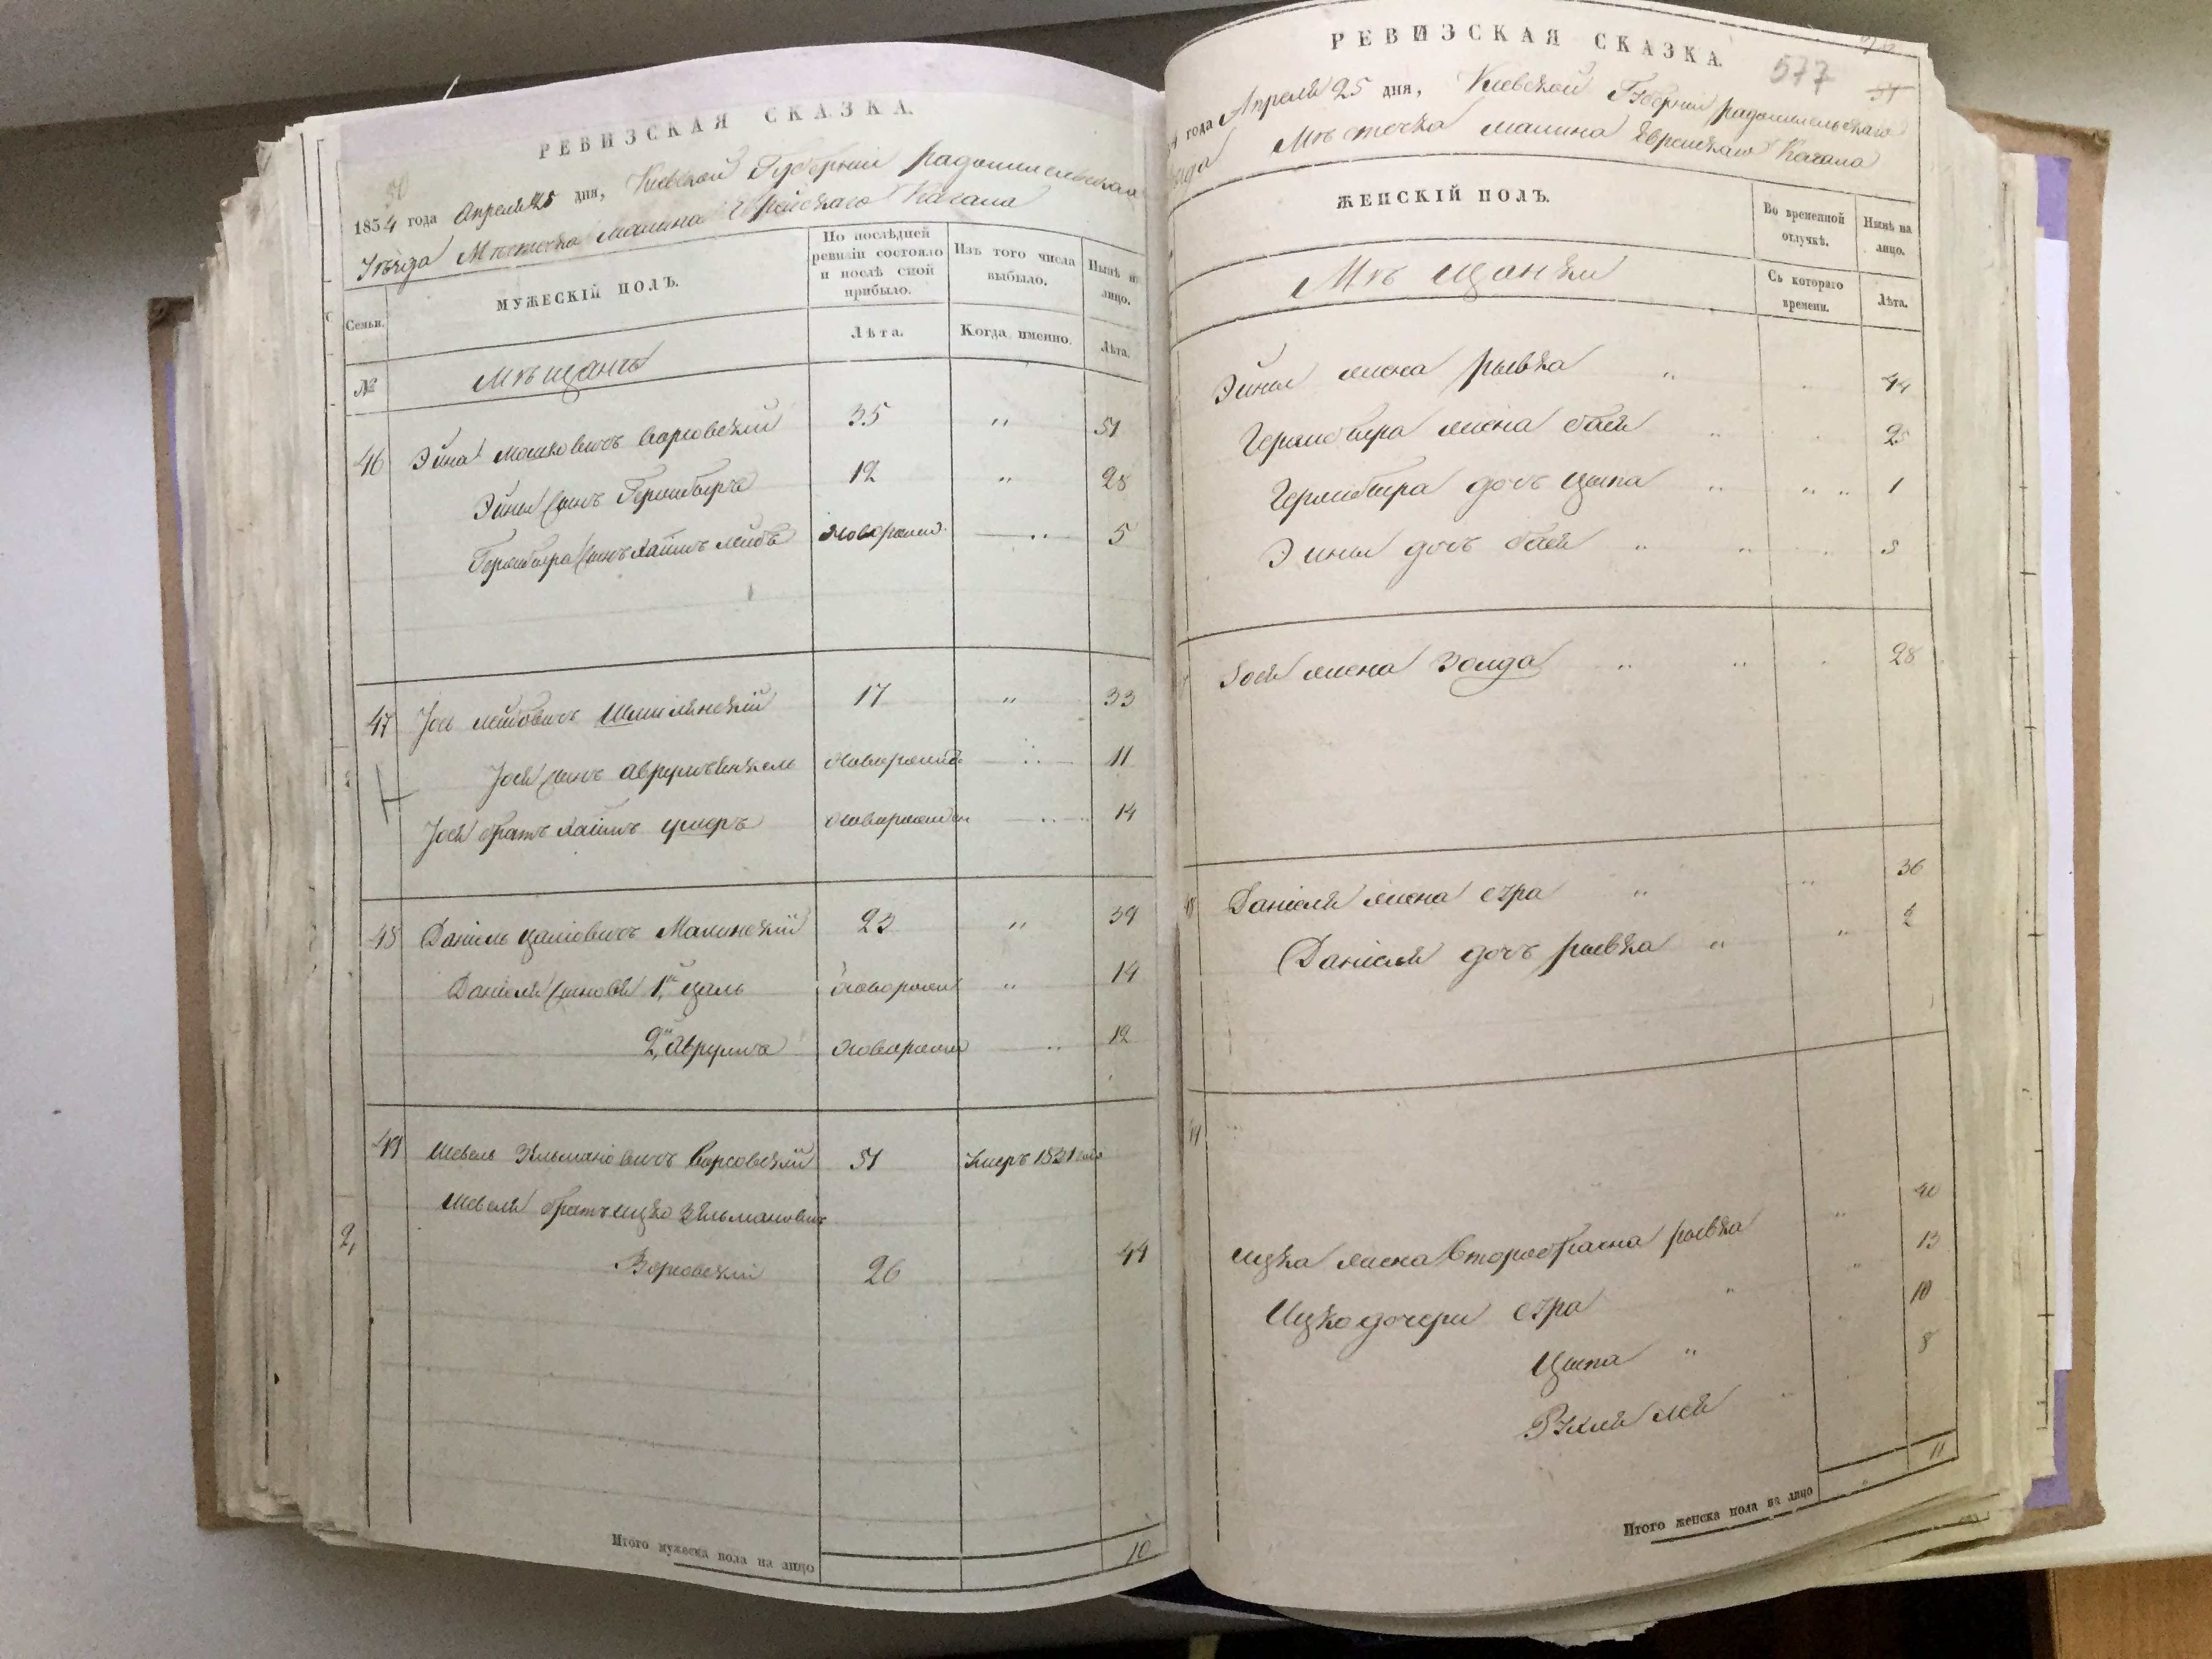 РЕВИЗСКАЯ СКАЗКА.
1854 года Апреля 25 дня, Киевской Губерніи Радомисльскаго
Уѣзда Мѣстечка Малина Еврейскаго Кагала
Семьи.
МУЖЕСКІЙ ПОЛЪ.
По послѣдней ревизіи состояло и послѣ оной прибыло.
Изъ того числа выбыло.
Нынѣ на лицо.
Лѣта.
Когда именно.
Лѣта.
№
Мѣщанъ
46 Эйна Мошковичъ Варсовскій 35 " 51
Эйны сынъ Гершбера 12 " 28
Гершбера сынъ Хаимъ Лейбъ новорожд. 5
47 Іось Лейбовичъ Шмилянскій 17 " 33
Іося сынъ Аврумъ Енкель новорожд. 11
Іося братъ Хаимъ Ушеръ новорожден 14
48 Даніель Цаліовичъ Малинскій 23 " 39
Даніеля сыновья 1й Цаль новорожд " 14
2й Аврумъ новорожд 12
49 Шевель Зельмановичъ Варсовскій 51 Умеръ 1851 года
Шевеля братъ Ицко Зельмановичъ
2,
Варсовскій 26 44
Итого мужеска пола на лицо 10
РЕВИЗСКАЯ СКАЗКА.
577
года Апреля 25 дня, Киевской Губерніи Радомисльскаго
Мѣстечка Малина Еврейскаго Кагала
ЖЕНСКІЙ ПОЛЪ.
Во временной отлучкѣ.
Нынѣ на лицо.
Съ котораго времени.
Лѣта.
Мѣщанки
Эйны жена Рывка " 44
Гершбера жена Бася 25
Гершбера дочь Цыпа 1
Эйны дочь Бася
Іося жена Золда 28
Даніеля жена Сура " 36
Даніеля дочь Рывка " 2
Ицка жена Второбрачна Рывка 40
Ицко дочери Сура 13
Цыпа " 10
Рухля Лея 8
Итого женска пола на лицо 11